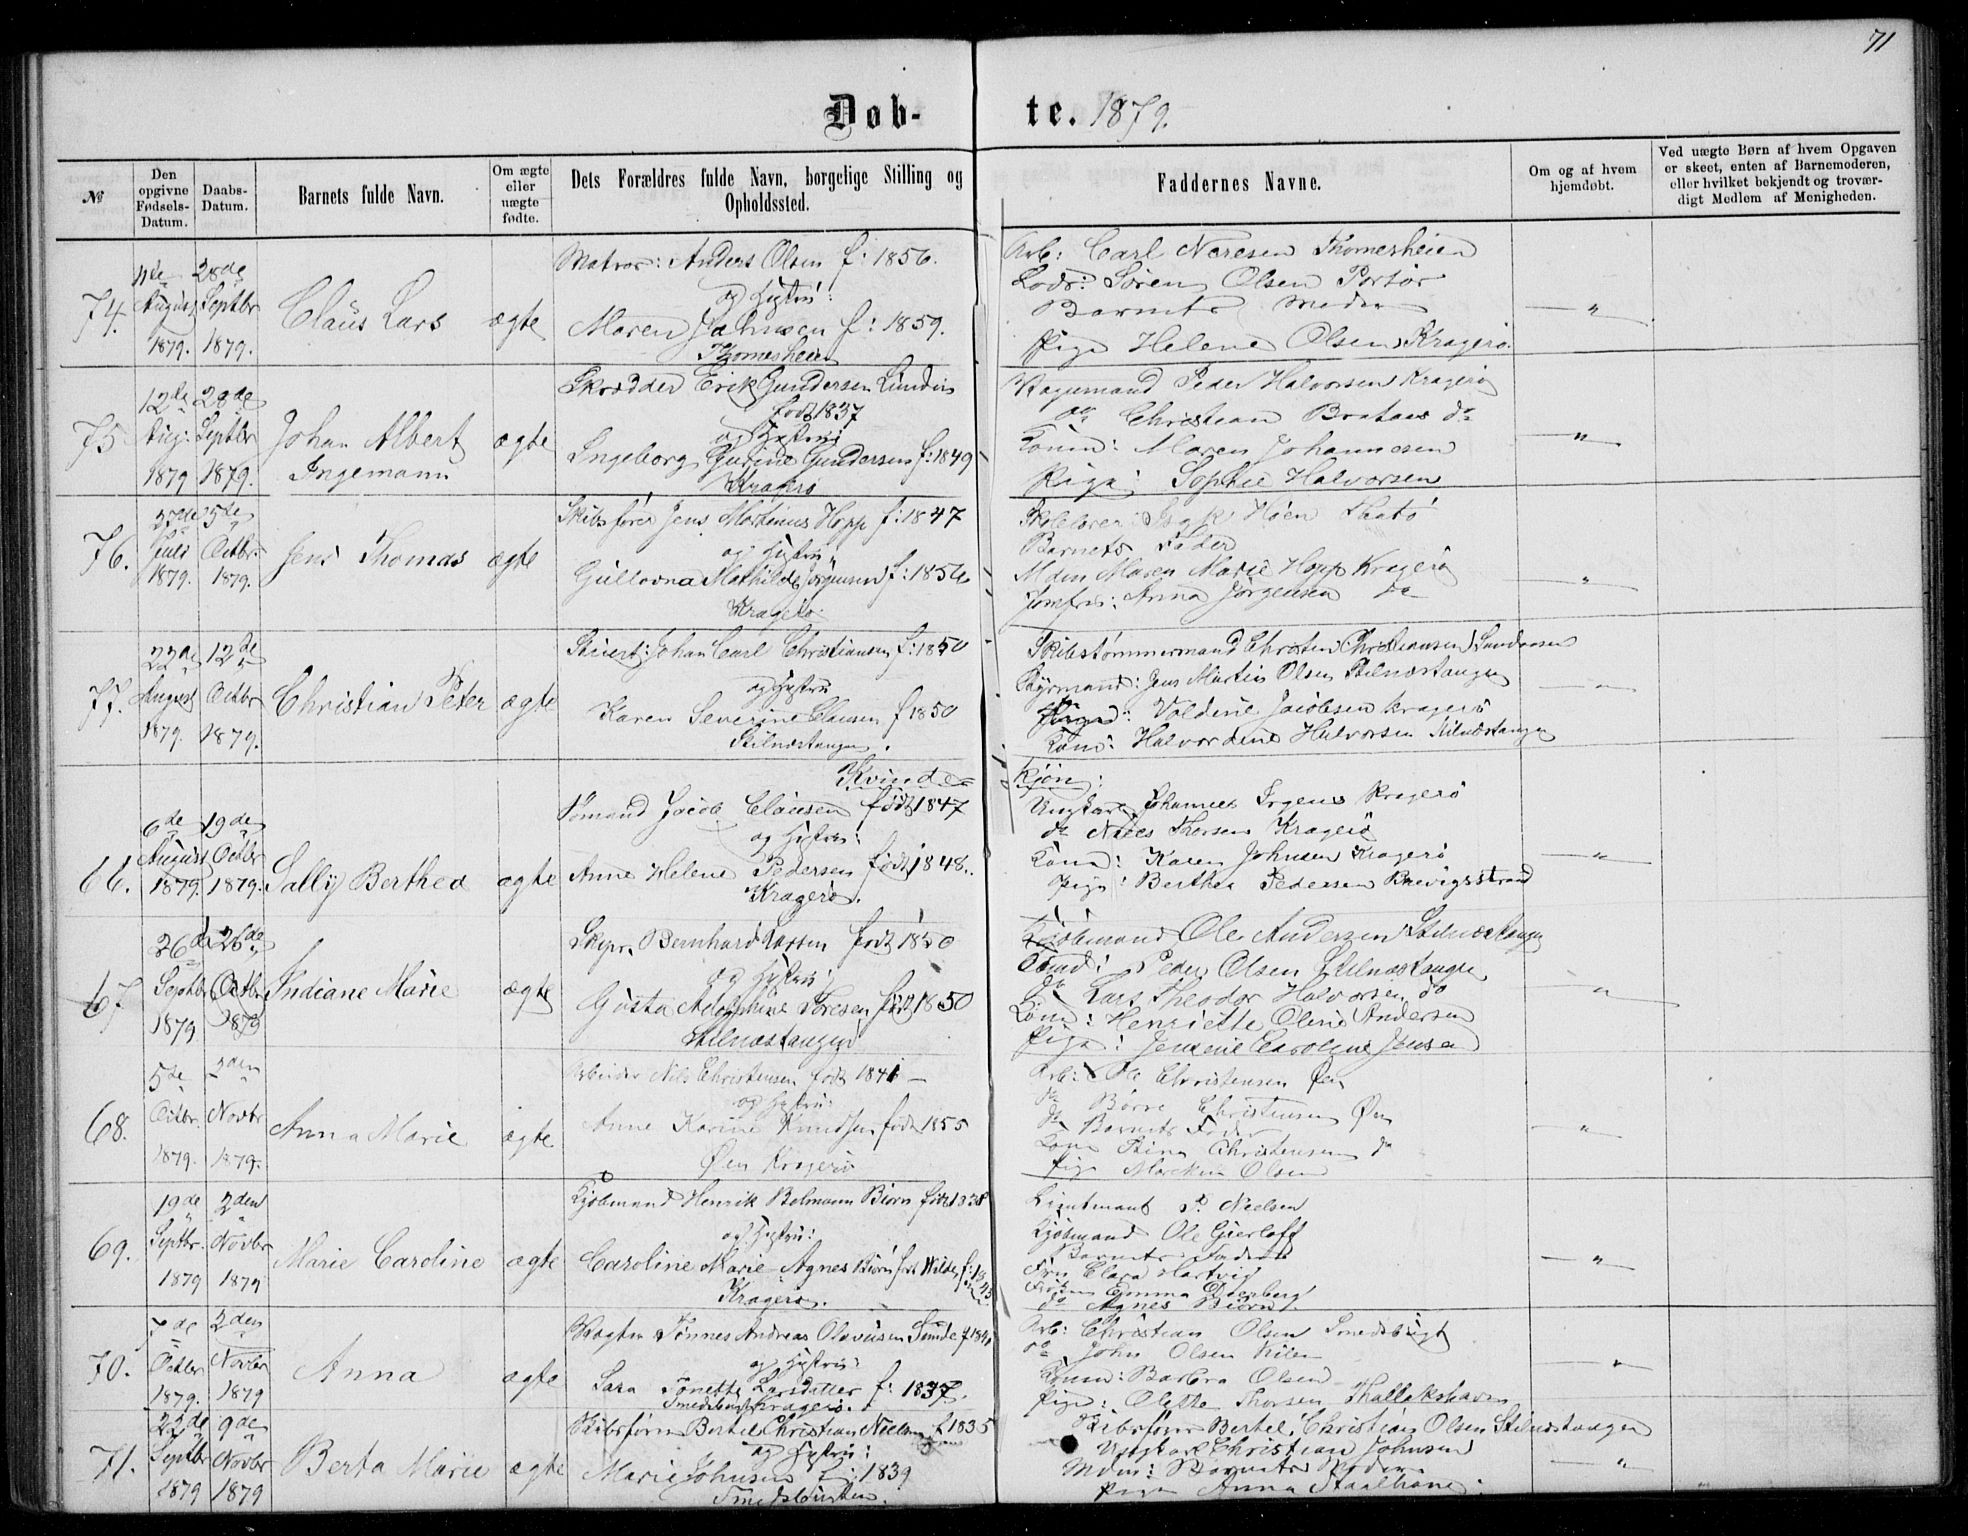 71
Døb- te. 1879.
№
Den opgivne Fødsels-Datum.
Daabs-Datum.
Barnets fulde Navn.
Om ægte eller uægte fødte.
Dets Forældres fulde Navn, borgelige Stilling og Opholdssted.
Faddernes Navne.
Om og af hvem hjemdøbt.
Ved uægte Børn af hvem Opgaven er skeet, enten af Barnemoderen, eller hvilket bekjendt og troværdigt Medlem af Menigheden.
74.
11te August 1879.
28de Septbr 1879.
Claus Lars
ægte
Matros: Anders Olsen f: 1856.
og Hustru:
Maren Johnsen f: 1859.
Thomesheien
Arb: Carl Neresen Thomesheien
Lods: Søren Olsen Portør
Barnets Moder
Pige Helene Olsen Kragerø.
— " —
75
12te Aug: 1879
28de Septbr 1879.
Johan Albert
Ingemann
ægte
Skrædder Erik Gundersen
født 1837
og Hustru
Ingeborg Gurine Gundersen f: 1849
Kragerø
Peder Halvorsen Kragerø
do Christian Brataas do
Kone: Maren Johannesen
Pige: Sophie Halvorsen
— " —
76.
27de Juli 1879.
5te Octbr. 1879.
Jens Thomas
ægte
Skibsfører Jens Martinus Hopp f: 1847
og Hustru
Mathilde Jørgensen f: 1856
Kragerø
Skolelærer Høen
Barnets Fader
Mdm Maren Marie Hopp Kragerø
Jomfru: Anna Jørgensen do
"
77.
22de August 1879.
12te Octbr 1879.
Christian Peter
ægte
Stuert: Johan Carl Christiansen f: 1850
og Hustru
Karen Severine Clausen f 1850
Stilnæstangen.
Skibstømmermand Christen Christiansen
Styrmand: Jens Martin Olsen Stilnæstangen
Pige: Valdine Jacobsen Kragerø
Kone: Halvordine Halvorsen Stilnæstangen
— " —
Kvinde-
kjøn:
66.
6de August 1879.
19de Octbr 1879.
Sally Berthea
ægte
Sømand Jacob Clausen født 1847
og Hustru:
Anne Helene Pedersen født 1848.
Kragerø.
Ungkarl Johannes Kragerø
do Thorsen Kragerø
Kone: Karen Johnsen Kragerø
Pige: Berthea Pedersen Brevigsstrand
— " —
67
26de Septbr 1879
26de Octbr 1879
Indiane Marie
ægte
Bernhard Larsen født 1850
og Hustru
Gusta Adolphine født 1850
Stilnæstangen
Kjøbmand Ole Andersen Stilnæstangen
Peder Olsen Stilnæstangen
do Lars Theodor Halvorsen do
Kone: Henriette Oline Andersen
Pige: Jensine Caroline Jensen
— " —
68.
5te Octbr. 1879.
2den Novbr 1879.
Anna Marie
ægte
Arbeider Nils Christensen født 1841 —
og Hustru:
Anne Karine Knudsen født 1855
Øen Kragerø
Arb: Ole Christensen Øen
do Børre Christensen Øen
do Barnets Fader
Kone Stina Christensen do
Pige Olsen
— " —
69.
19de Septbr. 1879
2den Novbr 1879
Marie Caroline
ægte
Kjøbmand Henrik Biørn født 1838
og Hustru:
Caroline Marie Agnes Biørn født Wilde f: 1845
Kragerø.
Lieutenant P. Nielsen
Kjøbmand Ole Gierløff
Barnets Fader
Fru Clara Hartvig
Frøken Emma
do Agnes Biørn
— " —
70.
7de Octbr 1879.
2den Novbr 1879
Anna
ægte
Vægter Tønnes Andreas Olavusen Sunde
og Hustru:
Sara Tonette Larsdatter f: 1837.
Kragerø.
Arb: Christian Olsen
do John Olsen Kilen
Kone: Barbra Olsen
Pige: Olette Thorsen Thallakshavn
— " —
71.
22de Septbr 1879
9de Novbr 1879
Berta Marie
ægte
Skibsfører Bertel Christian Nielsen f 1835
og Hustru:
Marie Johnsen f: 1839
Skibsfører Bertel Christian Olsen Stilnæstangen
Ungkarl Christian Johnsen
Mdm: Barnets Moder
Pige Anna Staalhane
— " —